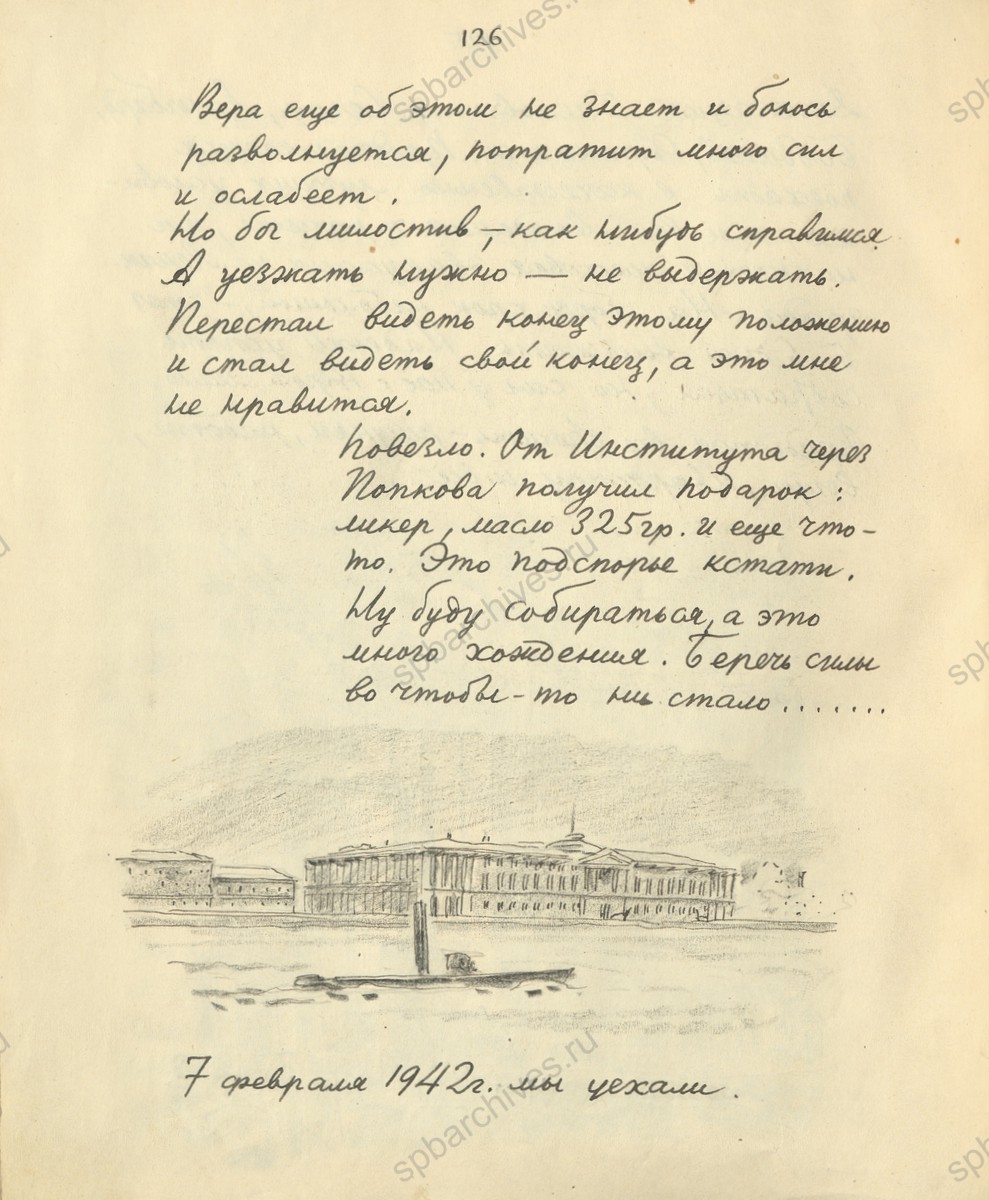 126
Вера еще об этом не знает и боюсь
разволнуется, потратит много сил
и ослабеет.
Но бог милостив –, как нибудь справимся.
А уезжать нужно — не выдержать.
Перестал видеть конец этому положению
и стал видеть свой конец, а это мне
не нравится.
Повезло. От Института через
Попкова получил подарок:
ликер, масло 325гр. и еще что-
то. Это подспорье кстати.
Ну буду собираться, а это
много хождения. Беречь силы
во чтобы-то ни стало.......
7 февраля 1942г. мы уехали.
spbarchives.ru
spbarchives.ru
spbarchives.ru